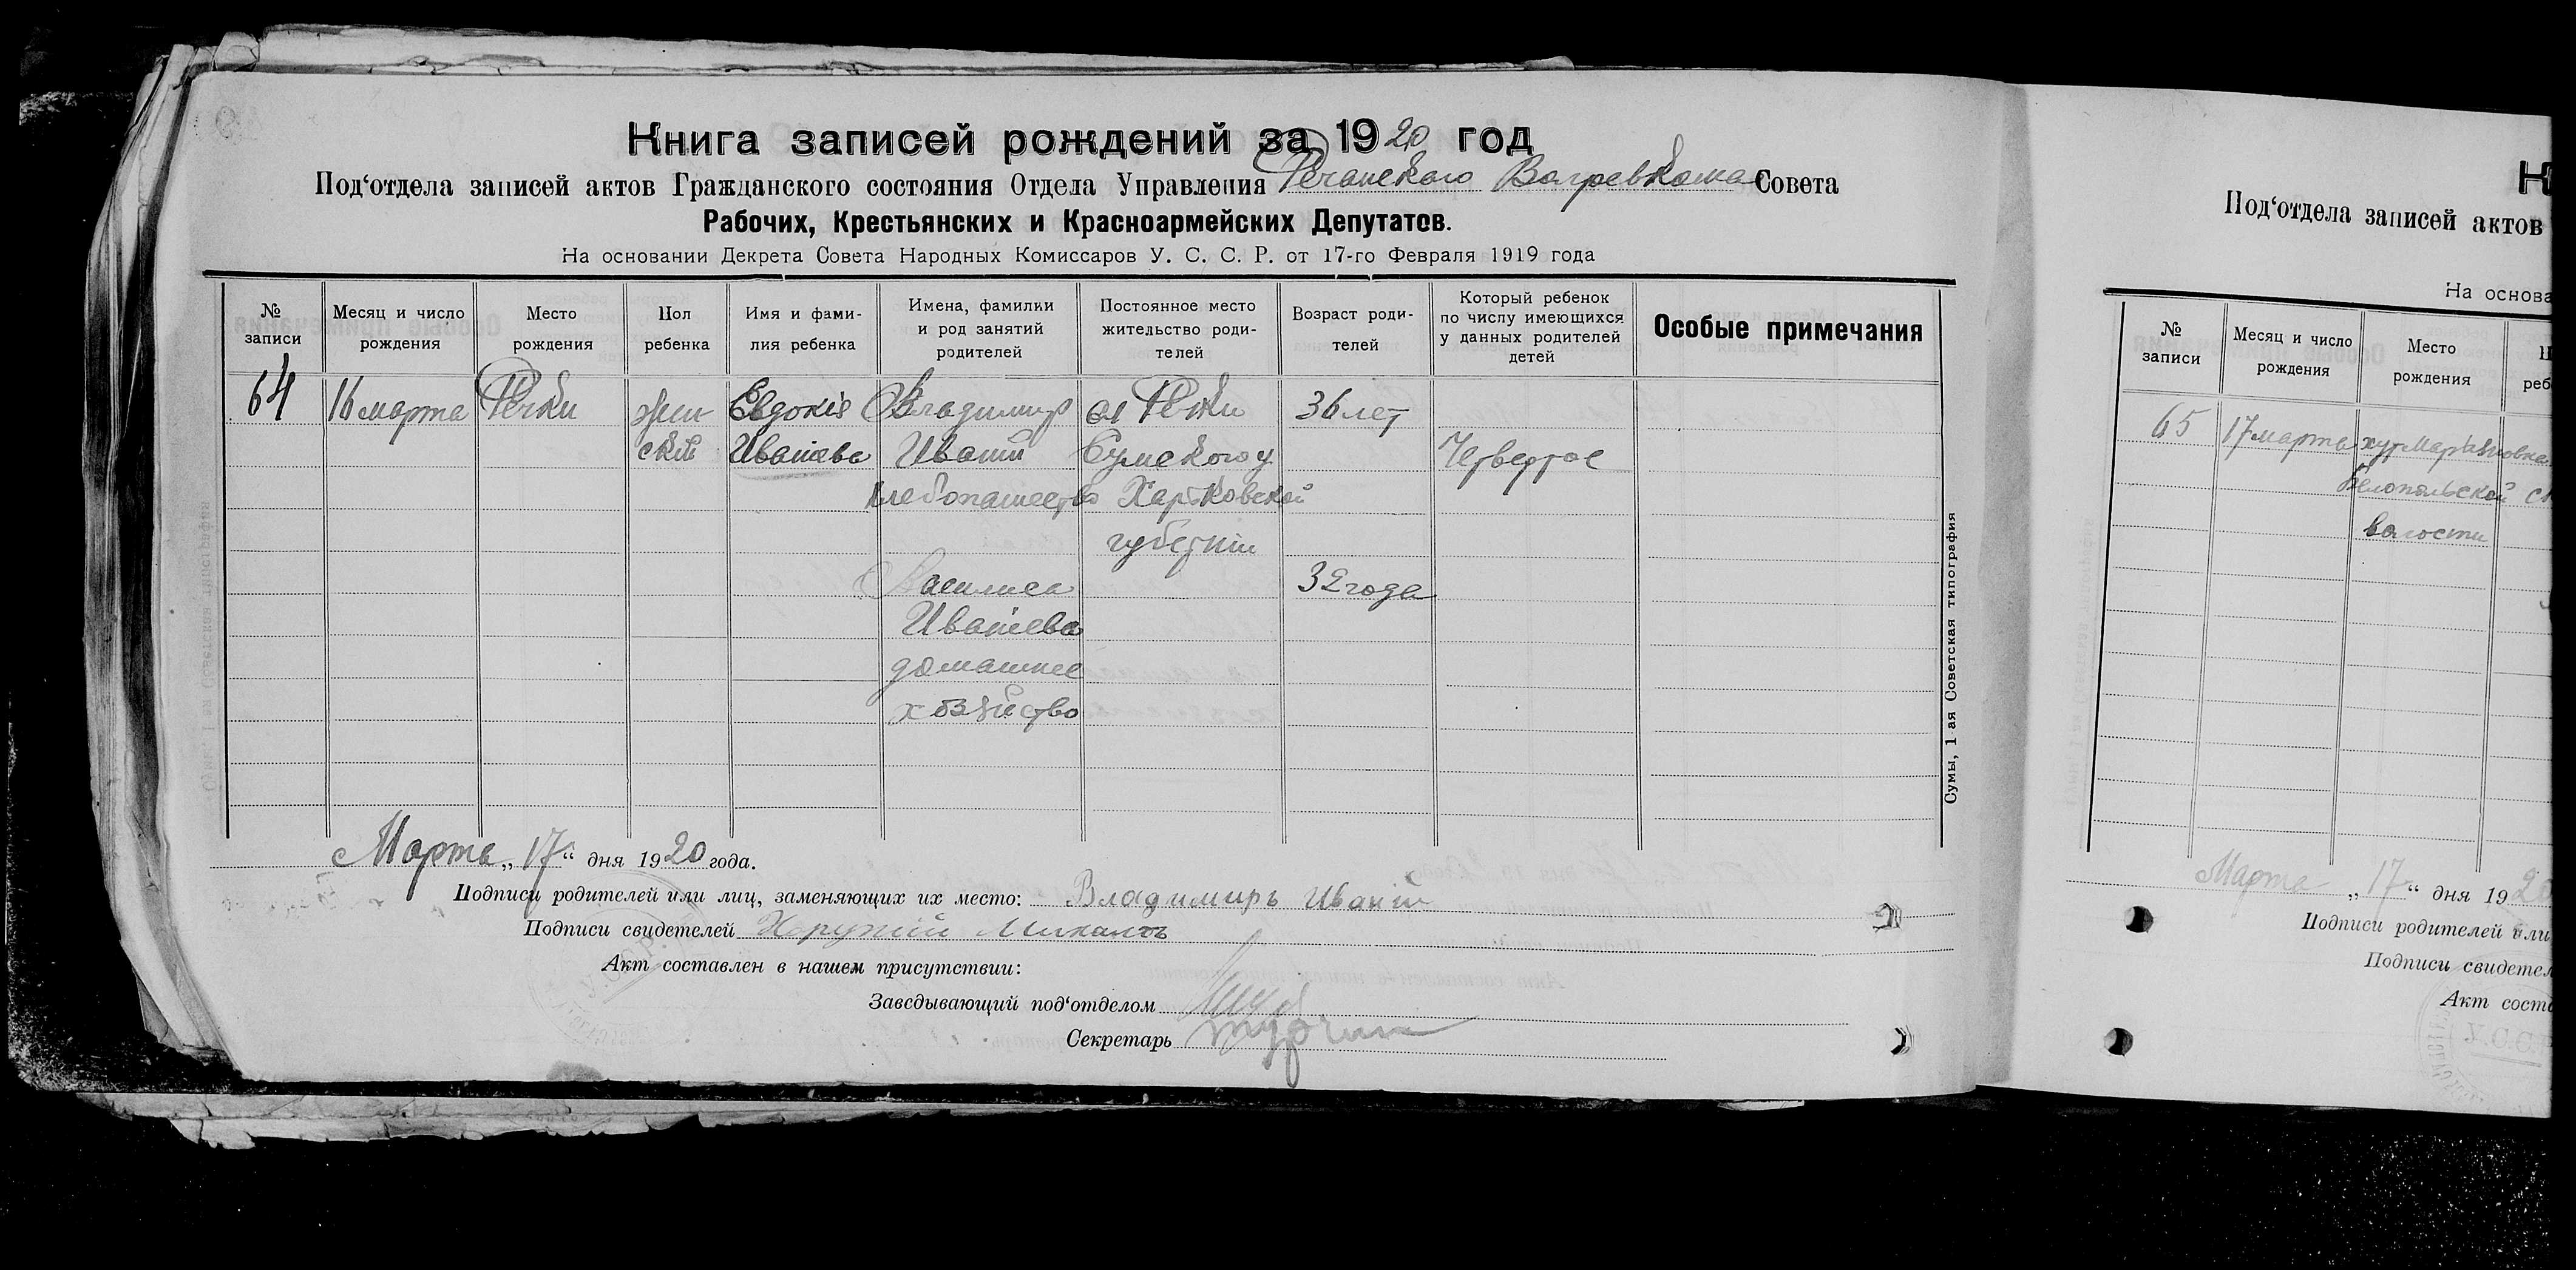 Книга записей рождений за 1920 год
Под‘отдела записей актов Гражданского состояния Отдела Управления Речанского Волревкома Совета
Рабочих, Крестьянских и Красноармейских Депутатов.
На основании Декрета Совета Народных Комиссаров У. С. С. Р. от 17-го Февраля 1919 года
№ записи
Месяц и число рождения
Место рождения
Пол ребенка
Имя и фами- лия ребенка
Имена, фамилии и род занятий родителей
Постоянное место жительство роди- телей
Возраст роди- телей
Который ребенок по числу имеющихся у данных родителей детей
Особые примечания
64 16 марта Речки жен- Евдокія Владимир сл Речки 36 лет
ский Иваніева Иваній Сумского у Четвертое
хлебопашество Харьковской
губерніи
Василиса 32 года
Иваніева
домашнее
хозяйство
Сумы, 1 ая Советская типография
Марта „17“ дня 1920 года.
Подписи родителей или лиц, заменяющих их место: Владимиръ Иваній
Подписи свидетелей Михаилъ
Акт составлен в нашем присутствии:
Заведывающий под‘отделом
Секретарь
К
Под‘отдела записей актов
На основа
№ записи
Месяц и число рождения
Место рождения
П
реб
65 17 марта хут Марьяновка
Белопольской
волости
Марта „17“ дня 1920
Подписи родителей или
Подписи свидетел
Акт соста
У.С.С.